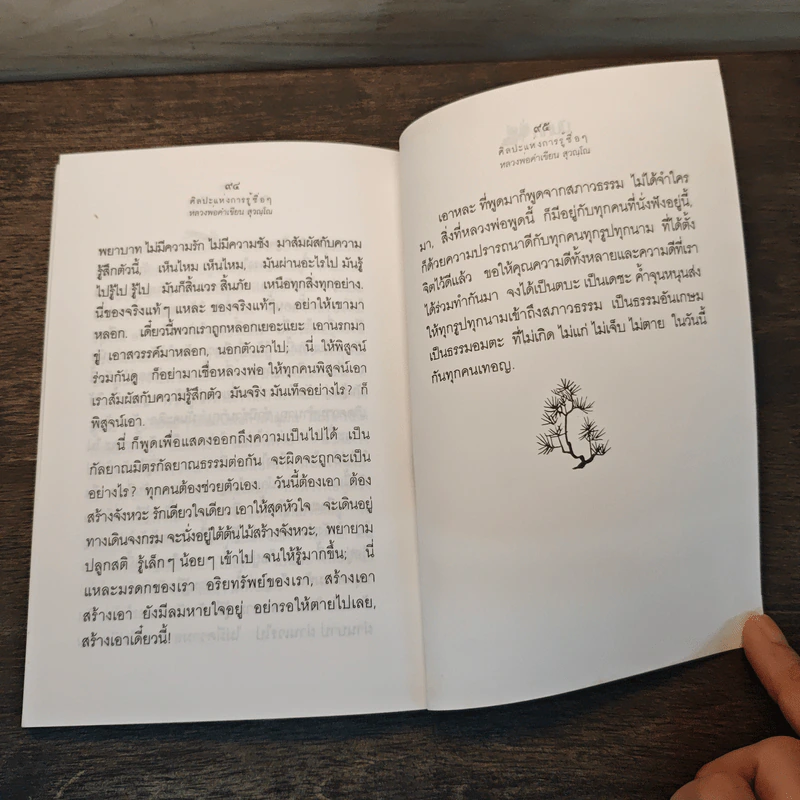 ๙๔
ศิลปะแห่งการรู้ซื่อๆ
หลวงพ่อคำเขียน สุวณฺโณ
พยาบาท ไม่มีความรัก ไม่มีความชัง มาสัมผัสกับความ
รู้สึกตัวนี้, เห็นไหม เห็นไหม, มันผ่านอะไรไป มันรู้
ไปรู้ไป รู้ไป มันก็สิ้นเวร สิ้นภัย เหนือทุกสิ่งทุกอย่าง.
นี่ของจริงแท้ๆ แหละ ของจริงแท้ๆ, อย่าให้เขามา
หลอก. เดี๋ยวนี้พวกเราถูกหลอกเยอะแยะ เอานรกมา
ขู่ เอาสวรรค์มาหลอก, นอกตัวเราไป; นี่ ให้พิสูจน์
ร่วมกันดู ก็อย่ามาเชื่อหลวงพ่อ ให้ทุกคนพิสูจน์เอา
เราสัมผัสกับความรู้สึกตัว มันจริง มันเท็จอย่างไร? ก็
พิสูจน์เอา.
นี่ ก็พูดเพื่อแสดงออกถึงความเป็นไปได้ เป็น
กัลยาณมิตรกัลยาณธรรมต่อกัน จะผิดจะถูกจะเป็น
อย่างไร? ทุกคนต้องช่วยตัวเอง. วันนี้ต้องเอา ต้อง
สร้างจังหวะ รักเดียวใจเดียว เอาให้สุดหัวใจ จะเดินอยู่
ทางเดินจงกรม จะนั่งอยู่ใต้ต้นไม้สร้างจังหวะ, พยายาม
ปลูกสติ รู้เล็กๆ น้อยๆ เข้าไป จนให้รู้มากขึ้น; นี่
แหละมรดกของเรา อริยทรัพย์ของเรา, สร้างเอา
สร้างเอา ยังมีลมหายใจอยู่ อย่ารอให้ตายไปเลย,
สร้างเอาเดี๋ยวนี้!
๙๕
ศิลปะแห่งการรู้ซื่อๆ
หลวงพ่อคำเขียน สุวณฺโณ
เอาหละ ที่พูดมาก็พูดจากสภาวธรรม ไม่ได้จำใคร
มา, สิ่งที่หลวงพ่อพูดนี้ ก็มีอยู่กับทุกคนที่นั่งฟังอยู่นี้,
ก็ด้วยความปรารถนาดีกับทุกคนทุกรูปทุกนาม ที่ได้ตั้ง
จิตไว้ดีแล้ว ขอให้คุณความดีทั้งหลายและความดีที่เรา
ได้ร่วมทำกันมา จงได้เป็นตบะ เป็นเดชะ ค้ำจุนหนุนส่ง
ให้ทุกรูปทุกนามเข้าถึงสภาวธรรม เป็นธรรมอันเกษม
เป็นธรรมอมตะ ที่ไม่เกิด ไม่แก่ ไม่เจ็บ ไม่ตาย ในวันนี้
กันทุกคนเทอญ.